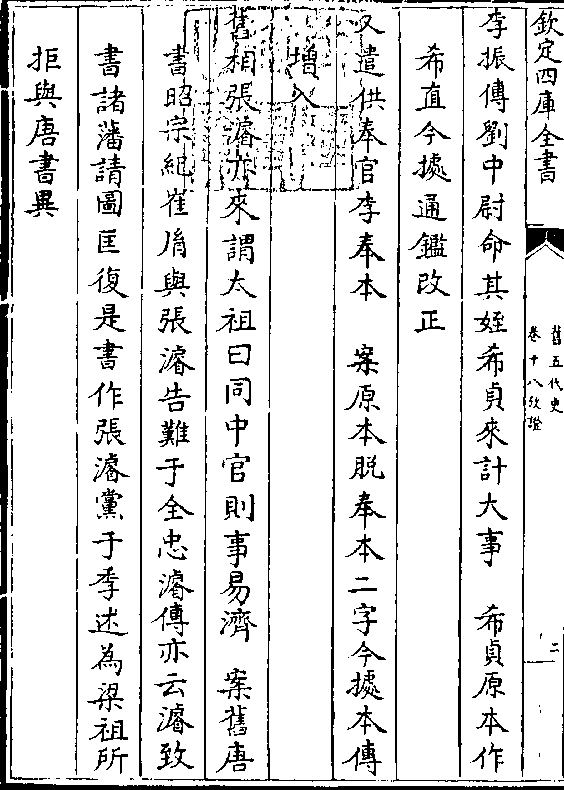 欽定四庫全書
舊五代史
卷十八攷證
二
李振傳劉中尉命其姪希貞來計大事　希貞原本作
希直今據通鑑改正
又遣供奉官李奉本　案原本脫奉本二字今據本傳
增入
舊相張濬亦來謂太祖曰同中官則事易濟　案舊唐
書昭宗紀崔胤與張濬告難于全忠濬傳亦云濬致
書諸藩請圖匡復是書作張濬黨于季述為梁祖所
拒與唐書異